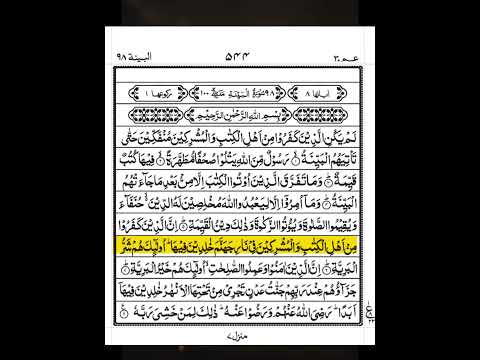 عم ۳۰ ۵۴۴ البينة ۹۸
اٰياتها ۸ ۹۸ سُوْرَةُ الْبَيِّنَةِ مَدَنِيَّةٌ ۱۰۰ ركوعها ۱
بِسْمِ اللّٰهِ الرَّحْمٰنِ الرَّحِيْمِ
لَمْ يَكُنِ الَّذِيْنَ كَفَرُوْا مِنْ اَهْلِ الْكِتٰبِ وَالْمُشْرِكِيْنَ مُنْفَكِّيْنَ حَتّٰى
تَاْتِيَهُمُ الْبَيِّنَةُ ۙ رَسُوْلٌ مِّنَ اللّٰهِ يَتْلُوْا صُحُفًا مُّطَهَّرَةً ۙ فِيْهَا كُتُبٌ
قَيِّمَةٌ ؕ وَمَا تَفَرَّقَ الَّذِيْنَ اُوْتُوا الْكِتٰبَ اِلَّا مِنْۢ بَعْدِ مَا جَآءَتْهُمُ
الْبَيِّنَةُ ؕ وَمَآ اُمِرُوْٓا اِلَّا لِيَعْبُدُوا اللّٰهَ مُخْلِصِيْنَ لَهُ الدِّيْنَ ۙ حُنَفَآءَ
وَيُقِيْمُوا الصَّلٰوةَ وَيُؤْتُوا الزَّكٰوةَ وَذٰلِكَ دِيْنُ الْقَيِّمَةِ ؕ اِنَّ الَّذِيْنَ كَفَرُوْا
مِنْ اَهْلِ الْكِتٰبِ وَالْمُشْرِكِيْنَ فِيْ نَارِ جَهَنَّمَ خٰلِدِيْنَ فِيْهَا ؕ اُولٰٓئِكَ هُمْ شَرُّ
الْبَرِيَّةِ ؕ اِنَّ الَّذِيْنَ اٰمَنُوْا وَعَمِلُوا الصّٰلِحٰتِ ۙ اُولٰٓئِكَ هُمْ خَيْرُ الْبَرِيَّةِ ؕ
جَزَآؤُهُمْ عِنْدَ رَبِّهِمْ جَنّٰتُ عَدْنٍ تَجْرِيْ مِنْ تَحْتِهَا الْاَنْهٰرُ خٰلِدِيْنَ فِيْهَآ
اَبَدًا ؕ رَضِيَ اللّٰهُ عَنْهُمْ وَرَضُوْا عَنْهُ ؕ ذٰلِكَ لِمَنْ خَشِيَ رَبَّهٗ
منزل ۷